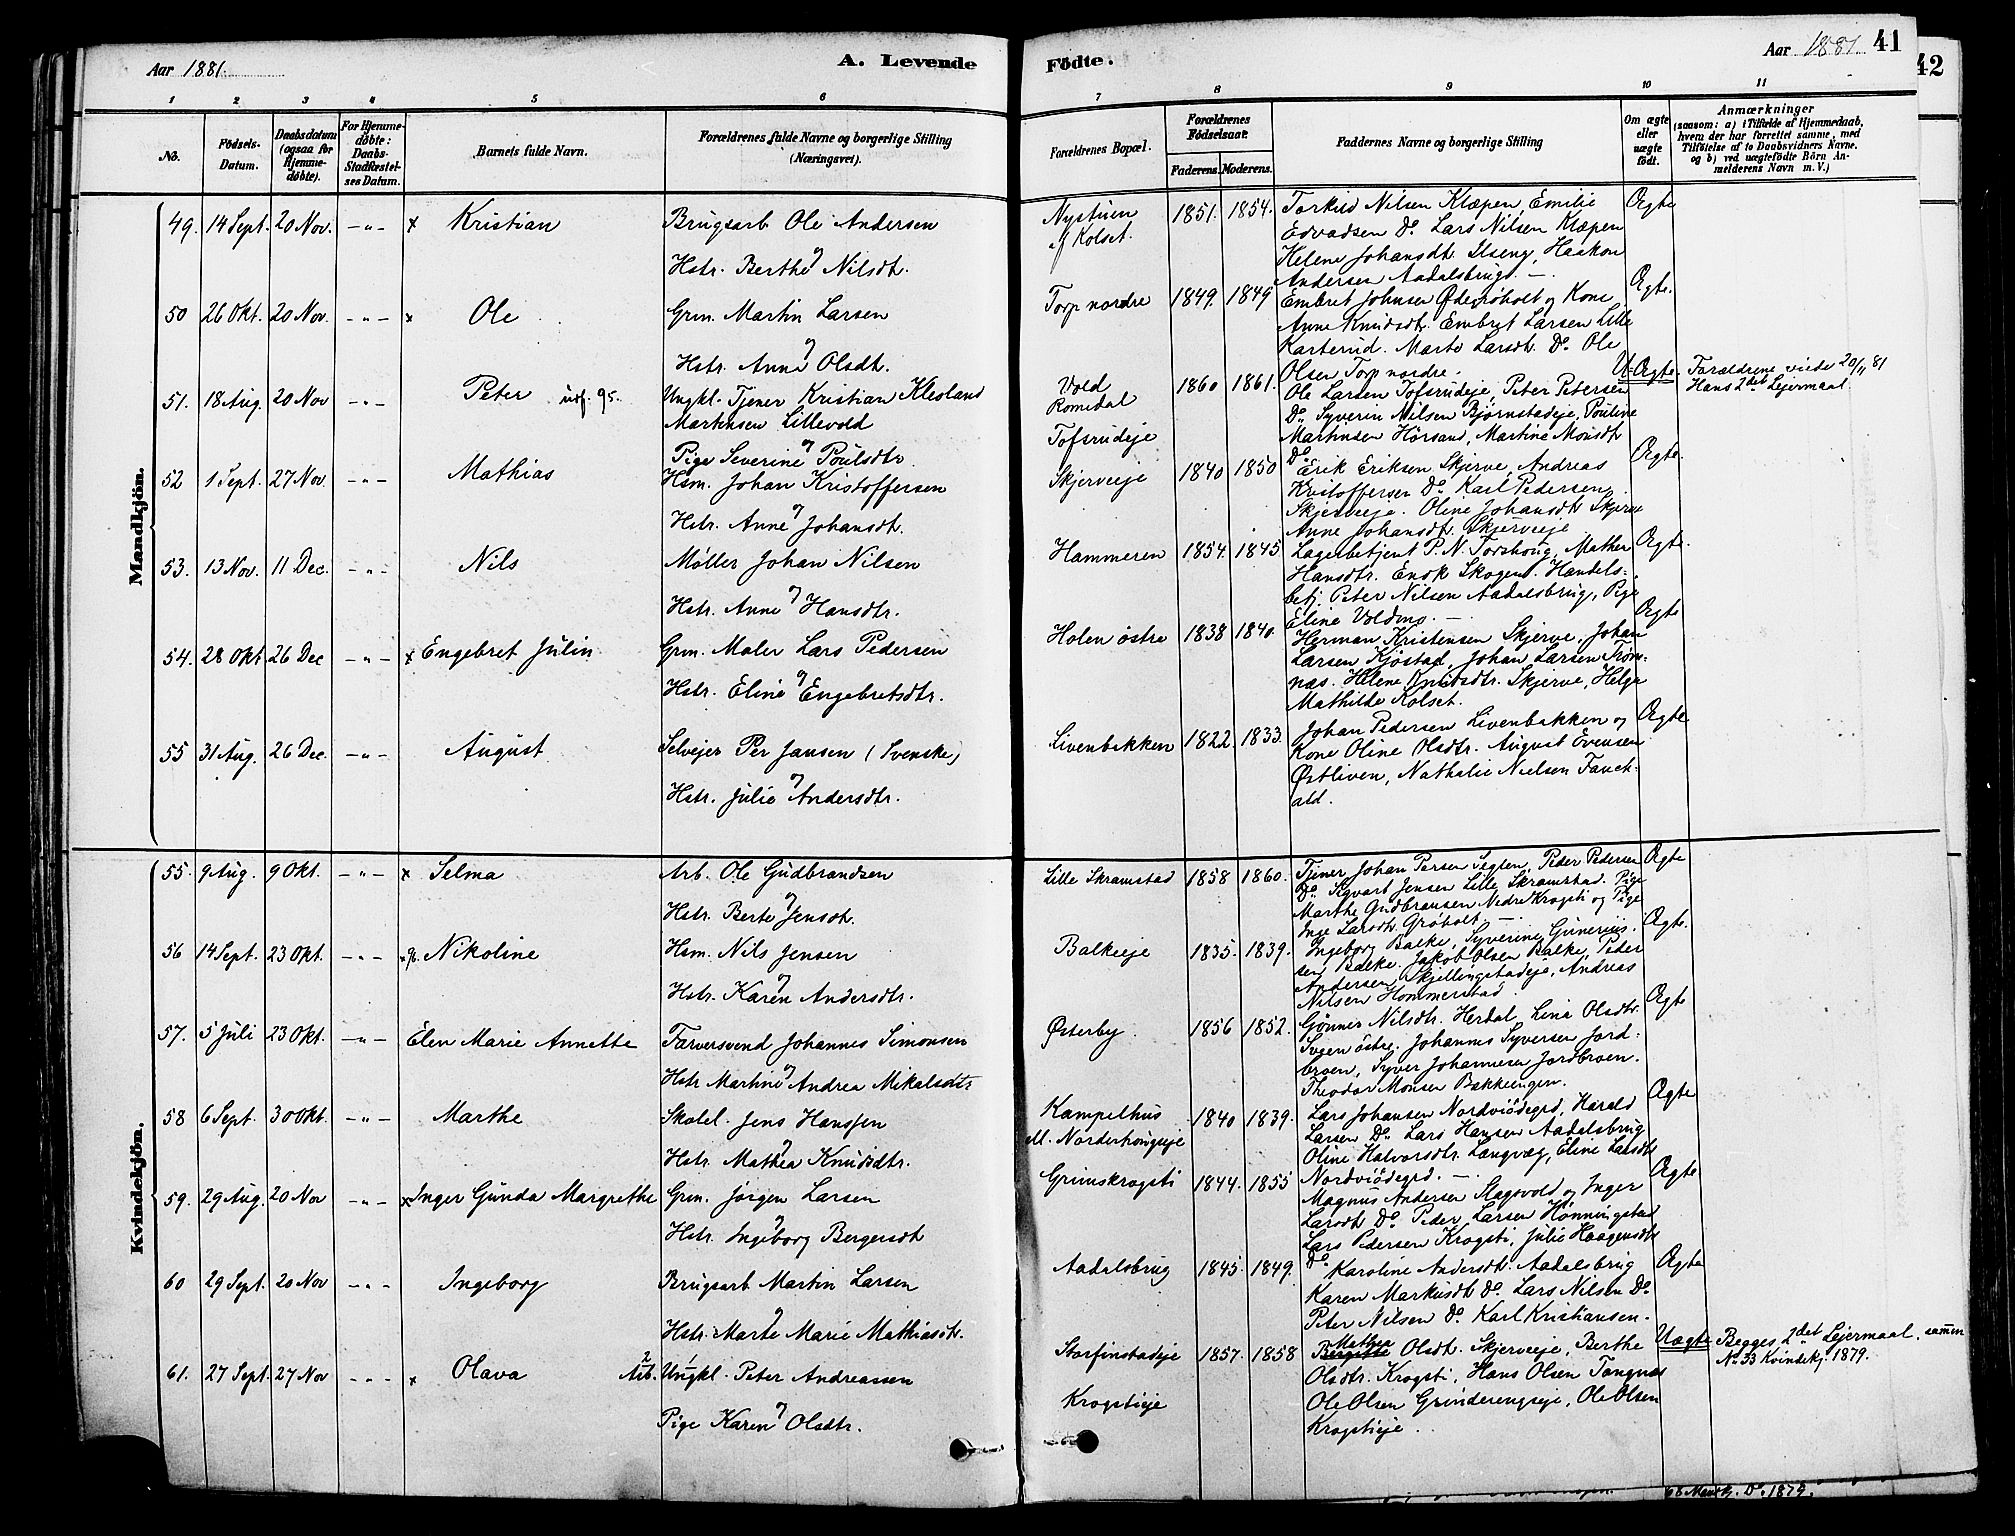 Aar 1881.
A. Levende
Fødte.
Aar 1881.
41
42
1 2 3 4 5 6 7 8 9 10 11
No.
Fødsels-Datum.
Daabsdatum (ogsaa for Hjemme-døbte).
For Hjemme-døbte: Daabs-Stadfæstel-ses Datum.
Barnets fulde Navn.
Forældrenes fulde Navne og borgerlige Stilling (Næringsvei).
Forældrenes Bopæl.
Forældrenes Fødselsaar.
Faderens. Moderens.
Faddernes Navne og borgerlige Stilling
Om ægte eller uægte født.
Anmærkninger
(saasom: a) i Tilfælde af Hjemmedaab, hvem der har forrettet samme, med Tilføielse af to Daabsvidners Navne. og b) ved uægtefødte Børn Anmelderens Navn m. V.)
Mandkjön.
49. 14 Sept. 20 Nov. -"- x Kristian
Brugsarb Ole Andersen
og
Hstr. Berthe Nilsdt.
Nystuen
af Kolset.
1851. 1854.
Torkild Nilsen Klæpen Emilie
Edvadsen Do Lars Nilsen Klæpen
Helene Johansdt. Ilseng, Haakon
Andersen Aadalsbrug. -
Ægte
50 26 Okt. 20 Nov. -"- x Ole
Grm. Martin Larsen
og
Hstr. Anne Olsdt.
Torp nordre
1849. 1849
Embret Johnsen Ødegrøholt og Kone
Anne Knudsdt. Embret Larsen Lille
Karterud. Marte Larsdt. Do Ole
Olsen Torp nordre.
Ægte.
51. 18 Aug. 20 Nov -"- Peter
Ungkl. Tjener Kristian Klesland
Martinsen Lillevold
og
Pige Severine Poulsdtr.
Vold
Romedal
Tofsrudeje
1860 1861.
Ole Larsen Tofsrudeje, Peter Petersen
Do Syverin Nilsen Bjørnstadeje, Pouline
Martinsen Hørsand, Martine Monsdtr
Do
U-Ægte.
Forældrene viede 20/11 81
Hans 2det Lejermaal.
52 1 Sept. 27 Nov. -"- Mathias
Hsm. Johan Kristoffersen
og
Hstr. Anne Johansdt.
Skjerveeje
1840 1850
Erik Eriksen Skjerve, Andreas
Kristoffersen Do Karl Pedersen
Skjerveeje. Oline Johansdt. Skjerve
Anne Johansdt. Skjerveeje
Ægte.
53. 13 Nov. 11 Dec. -"- Nils
Møller Johan Nilsen
og
Hstr. Anne Hansdtr.
Hammeren
1854. 1845
Lagerbetjent P. N. Torshoug, Mather
Hansdtr. Enok Skogen. Handels-
betj. Peter Nilsen Aadalsbrug, Pige
Eline Volding. -
Ægte.
54. 28 Okt 26 Dec -"- x Engebret Julin
Grm. Maler Lars Pedersen
og
Hstr. Eline Engebretsdtr.
Holen østre
1838 1840.
Herman Kristensen Skjerve, Johan
Larsen Kjøstad, Johan Larsen Trøn-
næs. Helene Knudsdtr. Skjerve, Helga
Mathilde Kolset.
Ægte
55 31 Aug. 26 Dec. -"- August
Selvejer Per Jansen (Svenske)
og
Hstr. Julie Andersdtr.
Livenbakken
1822. 1833.
Johan Pedersen Livenbakken og
Kone Oline Olsdtr. August Evensen
Østliven, Nathalie Nielsen Fauch-
ald.
Ægte
Kvindekjön.
55. 9 Aug. 9 Okt. -"- x Selma
Arb. Ole Gudbrandsen
og
Hstr. Berte Jensdt.
Lille Skramstad
1858 1860.
Tjener Johan Persen Segten, Peder Pedersen
Do Sigvart Jensen Lille Skramstad. Pige
Marthe Gudbransen Nedre Krogsti og Pige
Inge Larsdt. Grøholt. -
Ægte
56 14 Sept. 23 Okt. -"- Nikoline
Hsm. Nils Jensen
og
Hstr. Karen Andersdtr.
Balkeeje
1835. 1839.
Ingeborg Balke, Syverine Gunerius-
sen Balke. Jakob Olsen Balke, Peder
Andersen Skjellingstadeje, Andreas
Nilsen Hommerstad.
Ægte.
57. 5 Juli 23 Okt. -"- Elen Marie Annette
Farversvend Johannes Simonsen
og
Hstr Martine Andrea Mikalsdtr
Østerby.
1856 1852.
Gønner Nilsdtr. Herdal, Lina Olsdtr.
Svenøstre. Johannes Syversen Jord-
broen, Syver Johannesen Jordbroen.
Theodor Monsen Bakkeengen.
Ægte
58 6 Sept. 30 Okt. -"- Marthe
Skolel. Jens Hanssen
og
Hstr. Mathea Knudsdtr.
Kampelhus
M. Norderhougseje
1840 1839.
Lars Johansen Nordviødegrd, Harald
Larsen Do Lars Hansen Aadalsbrug
Oline Halvorsdtr. Langvæg, Eline Larsdtr
Nordviødegrd. -
Ægte
59. 29 Aug. 20 Nov -"- x Inger Gunda Margrethe
Grm. Jørgen Larsen
og
Hstr. Ingeborg Bergersdt
Grimskrogsti
1844. 1855
Magnus Andersen Slagsvold og Inger
Larsdt. Do Peder Larsen Hønningstad
Lars Pedersen Krogsti, Julie Haagensdtr
Do
Ægte
60 29 Sept. 20 Nov -"- Ingeborg
Brugsarb Martin Larsen
og
Hstr. Marte Marie Mathiasdtr.
Aadalsbrug
1845. 1849.
Karoline Andersdt. Aadalsbrug
Karen Markusdt Do Lars Nilsen Do
Peter Nilsen Do Karl Kristiansen.
Ægte
61. 27 Sept. 27 Nov -"- x Olava
Arb. Ungkl. Peter Andreassen
og
Pige Karen Olsdtr.
Storfinstadeje
Krogstieje
1857. 1858
Mathea
Bergitte Olsdt. Skjerveeje, Berthe
Olsdtr. Krogsti, Hans Olsen Tangnes
Ole Olsen Grinderengseje, Ole Olsen
Krogstieje.
Uægte
Begges 2det Lejermaal, samen
No 33 Kvindekj. 1879.
68 Mandkj. Do. 1879.